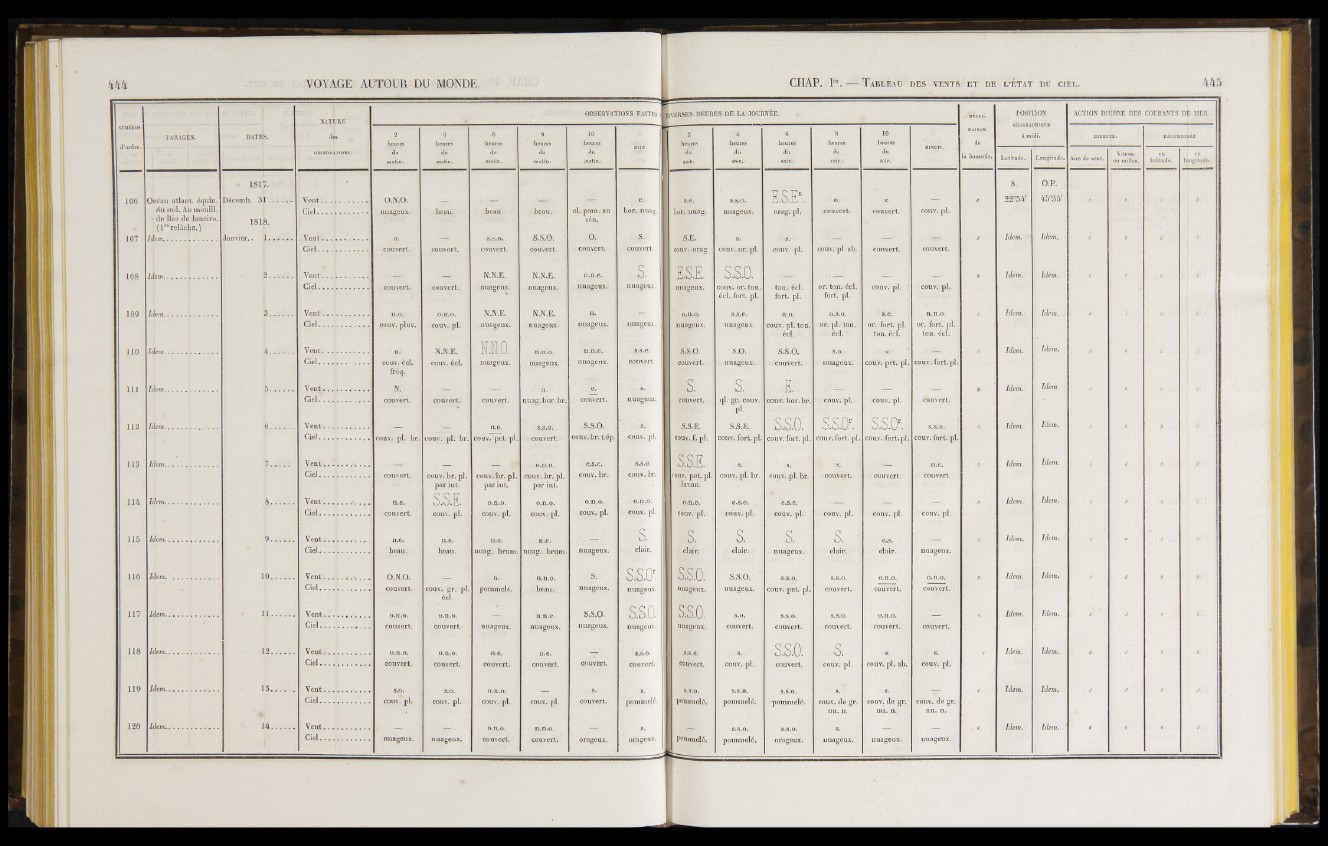 444 VOYAGE AUTOUR DU MONDE.
NUMÉROS d'ordre. PARAGES. DATES. NATURE des OBSERVATIONS. OBSERVATIONS FAITES
2 heures du matin. heures du matin. 6 heures du matin. 8 heures du matin. 10 heures du matin. MIDI.
1817.
106 Océan atlant. équin. Décemb. 31...... Vent........... O.N.O. — — — — e.
du sud. Au mouill. Ciel........... nuageux. beau. beau. beau. cl. pom. au hor. nuag.
de Rio de Janeiro. 1818. zén.
(1re relâche.)
107 Idem............ Janvier.. 1...... Vent........... o. — s.s.o. S.S.O. O. S.
Ciel........... couvert. couvert. couvert. couvert. couvert. couvert.
108 Idem............ 2...... Vent........... — — N.N.E. N.N.E. n.n.e. S.
Ciel........... couvert. couvert. nuageux. nuageux. nuageux. nuageux.
109 Idem............ 3...... Vent........... n.o. o.n.o. N.N.E. N.N.E. n. —
Ciel........... couv. pluv. couv. pl. nuageux. nuageux. nuageux. nuageux.
110 Idem............ 4...... Vent........... n. N.N.E. N.N.O. n.n.o. n.n.e. s.s.e.
Ciel........... couv. écl. couv. écl. nuageux. nuageux. nuageux. couvert.
fréq.
111 Idem............ 5...... Vent........... N. — — n. e. s.
Ciel........... couvert. couvert. couvert. nuag. hor. br. couvert. nuageux.
112 Idem............ 6...... Vent........... — — n.e. s.s.o. S.S.O. s.
Ciel........... couv. pl. br. couv. pl. br. couv. pet. pl. couvert. couv. br. t.ép. couv. pl.
113 Idem............ 7...... Vent........... — — — n.n.o. e.s.e. s.s.o.
Ciel........... couvert. couv. br. pl. couv. br. pl. couv. br. pl. couv. br. couv. br.
par int. par int. par int.
114 Idem............ 8...... Vent........... n.e. S.S.E. o.n.o. o.n.o. o.n.o. o.n.o.
Ciel........... couvert. couv. pl. couv. pl. couv. pl. couv. pl. couv. pl.
115 Idem............ 9...... Vent........... n.e. n.e. n.e. n.e. — S.
Ciel........... beau. beau. nuag. brum. nuag. brum. nuageux. clair.
116 Idem............ 10...... Vent........... O.N.O. — n. n.n.e. S. S.S.Or.
Ciel........... couvert. couv. gr. pl. pommelé. beau. nuageux. nuageux.
écl.
117 Idem............ 11...... Vent........... o.n.o. o.n.o. — n.n.e. S.S.O. S.S.O.
Ciel........... couvert. couvert. nuageux. nuageux. nuageux. nuageux.
118 Idem............ 12...... Vent........... o.n.o. o.n.o. n.e. n.e. — s.s.o.
Ciel........... couvert. couvert. couvert. couvert. couvert. couvert.
119 Idem............ 13...... Vent........... s.o. s.o. o.n.o. — s. s.
Ciel........... couv. pl. couv. pl. couv. pl. couv. pl. couvert. pommelé.
120 Idem............ 14...... Vent........... — — o.n.o. n.n.o. — s.
Ciel........... nuageux. nuageux. couvert. couvert. orageux. orageux.
CHAP. Ier. — TABLEAU DES VENTS ET DE L'ÉTAT DU CIEL. 445
DIVERSES HEURES DE LA JOURNÉE. de la boussole. POSITION GÉOGRAPHIQUE à midi. ACTION DIURNE DES COURANTS DE MER
DIRECTE. DÉCOMPOSÉE
heures du soir. 4 heures du soir. 6 heures du soir. 8 heures du soir. 10 heures du soir. MINUIT. Latitude. Longitude. Aire de vent. Vitesse en milles. en latitude. en longitude.
S. O.P.
s.e. s.s.o. E.S.Er. o. s. — 22°54' 45°35'
hor. nuag. nuageux. orag. pl. couvert. couvert. couv. pl.
S.E. s. s. — — — Idem. Idem.
couv. orag. couv. or. pl. couv. pl. couv. pl. ab. couvert. couvert.
E.S.E. S.S.O. — — — — Idem. Idem.
nuageux. couv. or. ton. ton. écl. or. ton. écl. couv. pl. couv. pl.
écl. fort. pl. fort. pl. fort. pl.
o.n.o. s.s.e. n.o. o.n.o. s.e. n.n.o. Idem. Idem.
nuageux. nuageux. couv. pl. ton. or. pl. ton. or. fort. pl. or. fort. pl.
écl. écl. ton. écl. ton. écl.
S.S.O. S.O. S.S.O. s.o. s. — Idem. Idem.
couvert. nuageux. couvert. nuageux. couv. pet. pl. couv. fort. pl.
S. S. E. — — — Idem. Idem.
couvert. pl. gr. couv. couv. hor. br. couv. pl. couv. pl. couvert.
pl.
S.S.E. S.S.E. S.S.O. S.S.Or. S.S.Or. s.s.o. Idem. Idem.
couv. f. pl. couv. fort. pl. couv. fort. pl. couv. fort. pl. couv. fort. pl. couv. fort. pl.
S.S.E. s. s. s. — n.e. Idem. Idem.
couv. pet. pl. couv. pl. br. couv. pl. br. couvert. couvert. couvert.
brum.
o.n.o. e.s.e. e.s.e. — — — Idem. Idem.
couv. pl. couv. pl. couv. pl. couv. pl. couv. pl. couv. pl.
S. S. S. S. e.s. — Idem. Idem.
clair. clair. nuageux. clair. clair. nuageux.
S.S.O. S.S.O. s.s.o. s.s.o. o.n.o. o.n.o. Idem. Idem.
nuageux. nuageux. couv. pet. pl. couvert. couvert. couvert.
S.S.O. s.o. s.s.o. s.s.o. o.n.o. — Idem. Idem.
nuageux. couvert. couvert. couvert. couvert. couvert.
s.s.e. s. S.S.O. S. s. s. Idem. Idem.
couvert. couv. pl. couvert. couv. pl. couv. pl. ab. couv. pl.
s.s.o. s.s.o. s.s.o. s. s. — Idem. Idem.
pommelé. pommelé. pommelé. couv. de gr. couv. de gr. couv. de gr.
nu. n. nu. n. nu. n.
— s.s.o. s.s.o. s. — — Idem. Idem.
pommelé. pommelé. orageux. nuageux. nuageux. nuageux.